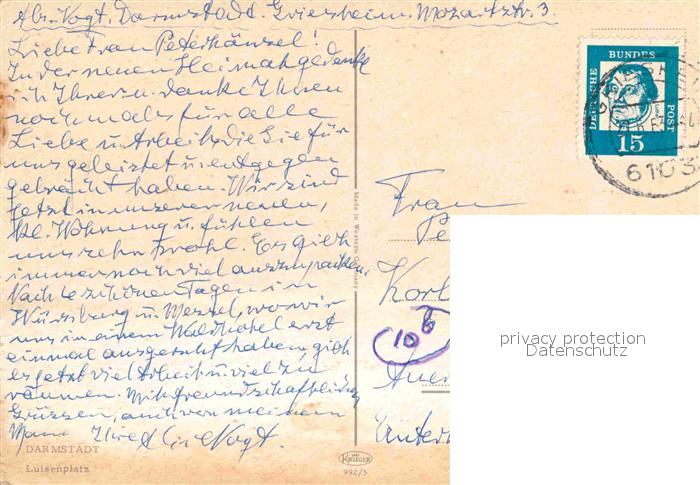 Abs. Vogt. Darmstadt. Griesheim. Mozartstr. 3.
Liebe Frau Peterhänsel!
In der neuen Heimat gedenke
ich Ihrer u. danke Ihnen
nochmals für alle
Liebe u. Arbeit, die Sie für
uns geleistet u. entgegen
gebracht haben. Wir sind
jetzt in unserer neuen,
kl. Wohnung u. fühlen
uns sehr wohl. Es gibt
immer noch viel auszupacken.
Nach 6 schönen Tagen in
Würzburg u. Wessel, wo wir
uns in einem Waldhotel erst
einmal ausgeruht haben, gibt
es jetzt viel Arbeit u. viel zu
räumen. Mit freundschaftlichen
Grüssen, auch von meinem
Mann Vogt.
DARMSTADT
Luisenplatz
Made in Western Germany
KRÜGER
992/5
DEUTSCHE BUNDESPOST
15
6103
Frau
Pe
Karl
10b
Aue
Unter
privacy protection
Datenschutz